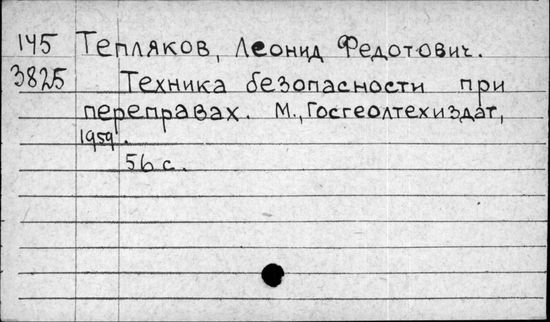 145 Тепляков, Леонид Федотович.
3825 Техника безопасности при
переправах. М., Госгеолтехиздат,
1959.
56 с.